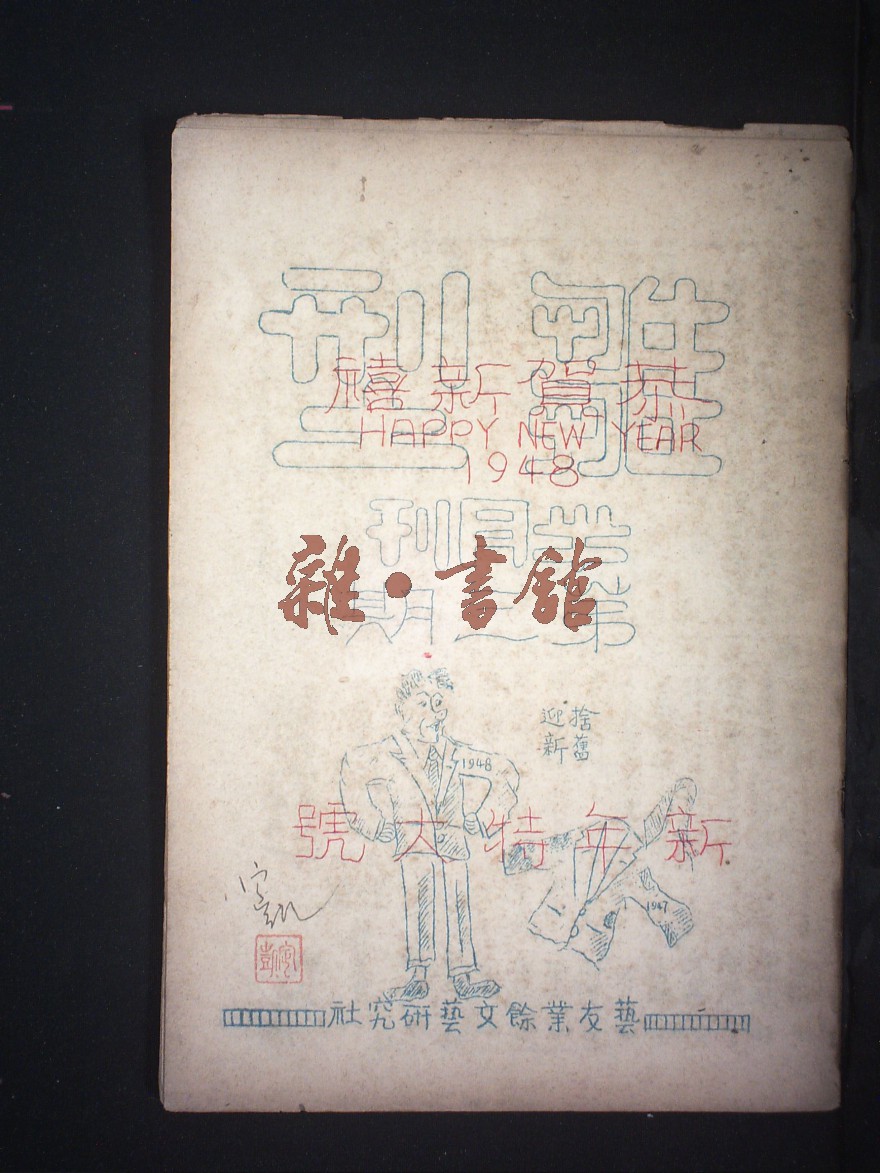 雛型
恭賀新禧
HAPPY NEW YEAR
1948
半月刊
第二期
雜·書館
捨舊
迎新
1948
新年特大號
1947
藝友業餘文藝研究社